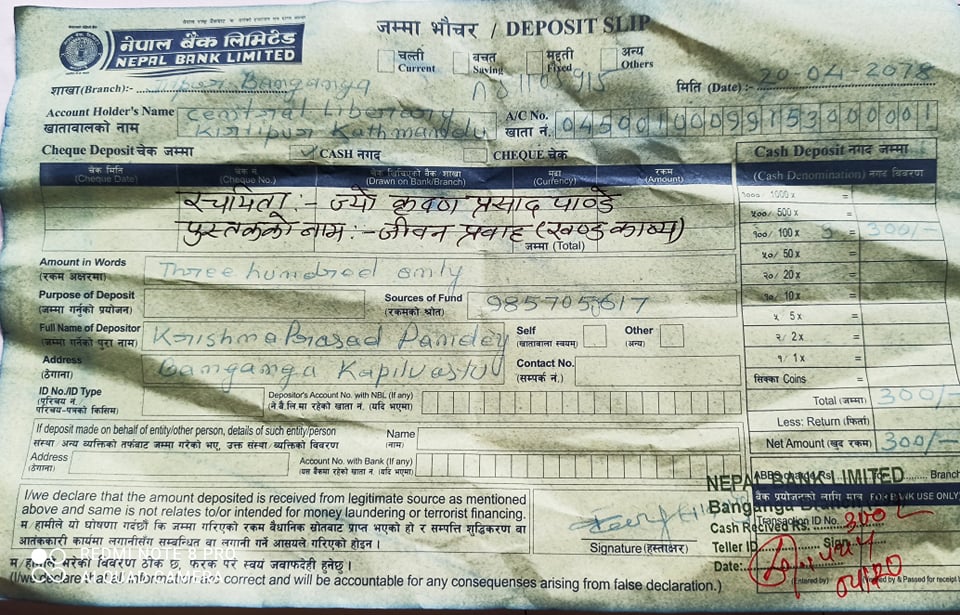 जम्मा भौचर / DEPOSIT SLIP
नेपाल बैंक लिमिटेड
NEPAL BANK LIMITED
चल्ती Current बचत Saving मुद्दती Fixed अन्य Others
शाखा (Branch):- Banganga मिति (Date) :- 20-04-2078
Account Holder's Name Central Liberary A/C No.
खातावालको नाम Kirtipur Kathmandu खाता नं. 04500100099153000001
Cheque Deposit चेक जम्मा CASH नगद CHEQUE चेक Cash Deposit नगद जम्मा
चेक मिति (Cheque Date) चेक नं. (Cheque No.) (Drawn on Bank/Branch) मुद्रा (Currency) रकम (Amount) (Cash Denomination) नगद विवरण
१००० 1000 x =
रचयिता :- ज्यो कृष्ण प्रसाद पाण्डे ५०० 500 x =
पुस्तकको नाम :- जीवन प्रवाह (खण्ड काव्य) १०० 100 x 3 = 300/-
जम्मा (Total) ५० 50 x =
Amount in Words Three hundred only
(रकम अक्षरमा) २० 20 x =
Purpose of Deposit Sources of Fund १० 10 x =
(जम्मा गर्नुको प्रयोजन) (रकमको श्रोत) ५ 5 x =
Full Name of Depositor Krishna Prasad Pandey Self Other २ 2 x =
(जम्मा गर्नेको पुरा नाम) (खातावाला स्वयम्) (अन्य)
Address Banganga Kapilvastu Contact No. १ 1 x =
(ठेगाना) (सम्पर्क नं.) सिक्का Coins =
ID No./ID Type Depositor's Account No. with NBL (If any) Total (जम्मा) 300/-
(परिचय नं./ परिचय-पत्रको किसिम) (ने.बैं.लि.मा रहेको खाता नं. (यदि भएमा) Less: Return (फिर्ता)
If deposit made on behalf of entity/other person, details of such entity/person Name Net Amount (खुद रकम) 300/-
संस्था/अन्य व्यक्तिको तर्फबाट जम्मा गरेको भए, उक्त संस्था/व्यक्तिको विवरण (नाम)
Address Account No. with Bank (If any)
(ठेगाना) (यस बैंकमा रहेको खाता नं. (यदि भएमा) Branch
NEPAL BANK LIMITED
बैंक प्रयोजनको लागि मात्र FOR BANK USE ONLY
I/we declare that the amount deposited is received from legitimate source as mentioned Banganga
above and same is not relates to/or intended for money laundering or terrorist financing. Transaction ID No.
म हामीले यो घोषणा गर्दछौं कि जम्मा गरिएको रकम वैधानिक स्रोतबाट प्राप्त भएको हो र सम्पत्ति शुद्धिकरण वा Cash Received Rs. 300/-
आतंककारी कार्यमा लगानीसँग सम्बन्धित वा लगानी गर्ने आसयले गरिएको होइन । Signature (हस्ताक्षर) Teller ID Sign
REDMI NOTE 8 PRO
AI QUAD CAMERA
म हामीले गरेको विवरण ठीक छ, फरक परे स्वयं जवाफदेही हुनेछु । Date:
(I/we declare the above information is correct and will be accountable for any consequences arising from false declaration.) (Entered by)